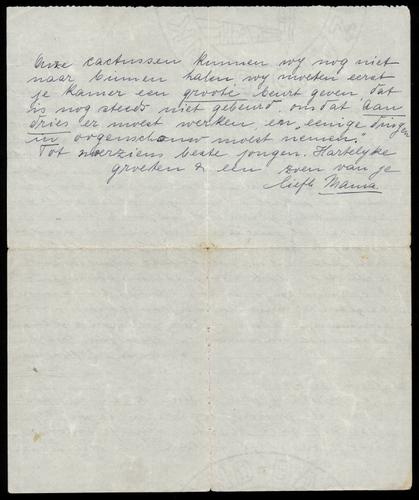 Onze cactussen kunnen wy nog niet
naar binnen halen, wy moeten eerst
je kamer een groote beurt geven, dat
is nog steeds niet gebeurd, omdat Aan
dries er moest werken en „eenige dingen
in oogenschouw moest nemen."
Tot weerziens beste jongen. Hartelyke
groeten & een zoen van je
liefh. Mama.